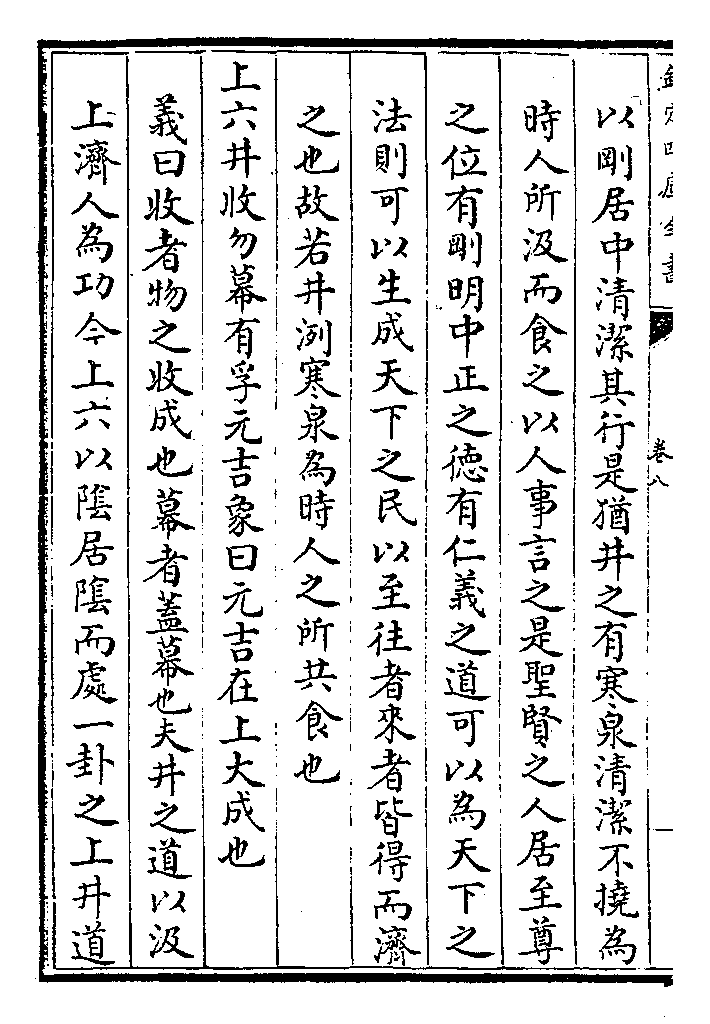 欽定四庫全書
卷八
以剛居中清潔其行是猶井之有寒泉清潔不撓為
時人所汲而食之以人事言之是聖賢之人居至尊
之位有剛明中正之德有仁義之道可以為天下之
法則可以生成天下之民以至往者來者皆得而濟
之也故若井洌寒泉為時人之所共食也
上六井收勿幕有孚元吉象曰元吉在上大成也
義曰收者物之收成也幕者蓋幕也夫井之道以汲
上濟人為功今上六以陰居陰而處一卦之上井道